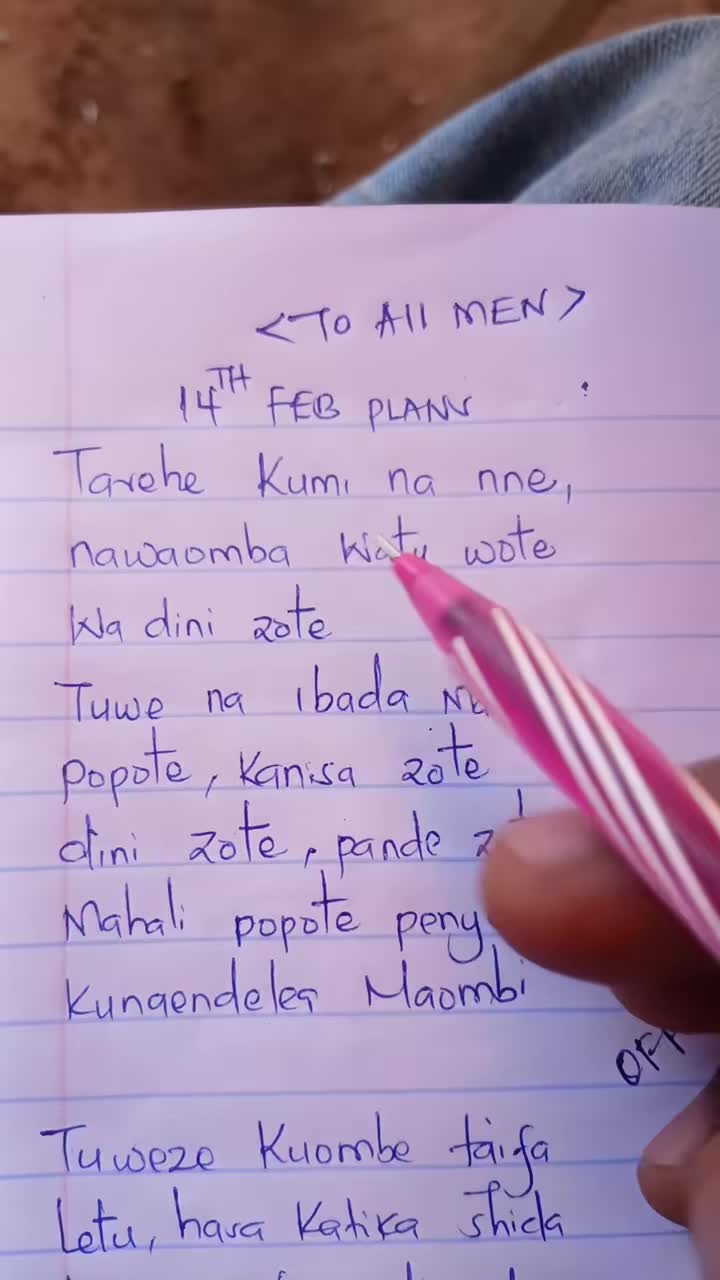 <TO All MEN>
14TH FEB PLANS
Tarehe Kumi na nne,
nawaomba Watu wote
Wa dini zote
Tuwe na Ibada
popote, Kanisa zote
dini zote, pande
Mahali popote
Kunaendelea Maombi
Tuweze Kuombe taifa
Letu, hasa Katika Shida